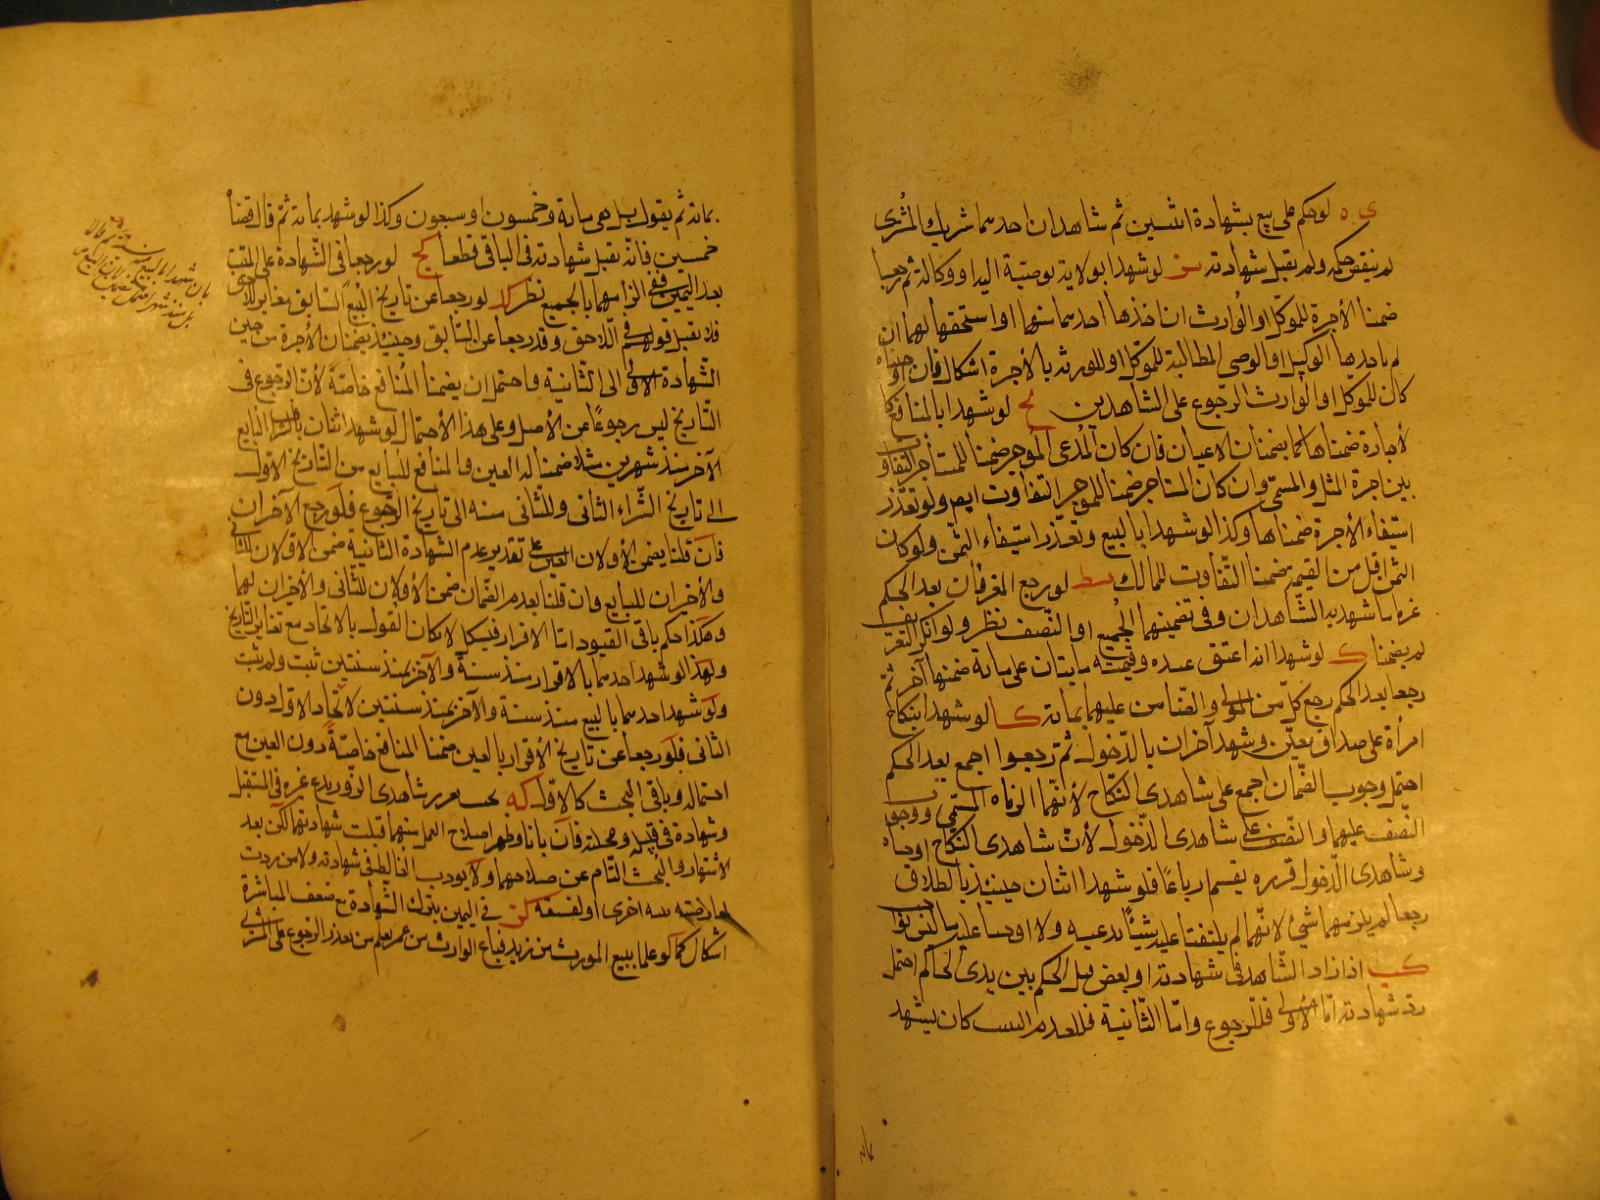 لوحكم على بيع بشهادة اثنين ثم شاهدان احدهما شريك المشترى
لم ينقض حكمه ولم يقبل شهادته لو شهدا بولايته بوصية اليه او وكالة ثم رجعا
ضمنا الأجرة للموكل او الوارث ان اخذها احدهما منهما او استحقها لهما ان
لم ياخذها الوكيل او الوصى المطالبة للموكل او للورثه بالأجرة اشكال فان
كان للموكل او الوارث الرجوع على الشاهدين يح لو شهدا بالمنافع
لاجارة ضمناها كما يضمنان الاعيان فان كان المدعى الموجر ضمنا للمستأجر التفاوت
بين اجرة المثل والمسمى وان كان المستاجر ضمنا للموجر التفاوت ايضا ولو تعذر
استيفاء الأجرة ضمناها وكذا لو شهدا بالبيع وتعذر استيفاء الثمن ولو كان
الثمن اقل من القيمة ضمنا التفاوت للمالك يط لو رجع المعرفان بعد الحكم
غرما ما شهد به الشاهدان وفى تضمينهما الجميع او النصف نظر ولو انكر التعريف
لم يضمنا ك لو شهدا انه اعتق عبده وقيمته مايتان على ماية ضمنها آخر ثم
رجعا بعد الحكم رجع كل من المولى والضامن عليهما بماية كا لو شهدا بنكاح
امرأة على صداق معين وشهد آخران بالدخول ثم رجعوا اجمع بعد الحكم
احتمل وجوب الضمان اجمع على شاهدى النكاح لأنهما الزماه المسمى ووجوب
النصف عليهما والنصف على شاهدى الدخول لأن شاهدى النكاح اوجباه
وشاهدى الدخول قرره يقسم ارباعا فلو شهد اثنان حينئذ بالطلاق
رجعا لم يلزمهما شئ لانهما لم يلتفتا عليه شيئا يدعيه ولا اوجبا عليه ما ليس بواجب
كب اذا زاد الشاهد فى شهادته او نقص قبل الحكم بين يدى الحاكم احتمل
رد شهادته اما الأولى فللرجوع واما الثانية فلعدم كان يشهد
بماية ثم يقول بل هى ماية وخمسون او سبعون وكذا لو شهد بماية ثم قال قضاه
خمسين فانه يقبل شهادته فى الباقى قطعا كج لو رجعا فى الشهادة على الميت
بعد اليمين ففى الزامهما بالجميع نظر كد لو رجعا عن تاريخ البيع السابق مغاير للاحق
فلا يقبل قولهم فى اللاحق وقد رجعا عن السابق وحينئذ يضمنان الأجرة من حين
الشهادة الأولى الى الثانية واحتمل ان يضمنا المنافع خاصة لأن الرجوع فى
التاريخ ليس رجوعا عن الأصل وعلى هذا الأحتمال لو شهد اثنان بالشراء البايع
الآخر منذ شهرين مثلا ضمنا له العين والمنافع للبايع من التاريخ الأول
الى تاريخ الشراء الثانى وللثانى منه الى تاريخ الرجوع فلو رجع الآخران
فان قلنا يضمن الأولان العين على تقدير عدم الشهادة الثانية ضمن الاولان للثانى
والأخيران للبايع وان قلنا بعدم الضمان ضمن الأولان للثانى والأخيران لهما
وهكذا حكم باقى القيود اما الاقرار فيشكل لامكان القول بالاتحاد مع تغاير التاريخ
ولهذا لو شهد احدهما بالاقرار منذ سنة والآخر منذ سنتين ثبت ولم يثبت
ولو شهد احدهما بالبيع منذ سنة والآخر منذ سنتين لاتحاد الاول دون
الثانى فلو رجعا عن تاريخ الأقرار بالعين ضمنا المنافع خاصة دون العين مع
احتماله وباقى البحث كالأول كه يجب تعزير شاهدى الزور ليردع غيره فى المستقبل
وشهادة فى قبيله ومحلته فان تابا وظهر اصلاح العمل منهما قبلت شهادتهما لكن بعد
الاشتهار والبحث التام عن صلاحهما ولا يؤدب الغالط فى شهادته ولا من ردت
لمعارضته بينة اخرى او لفسقه كو فى اليمين بترك الشهادة مع ضعف المباشرة
اشكال كما لو علما ببيع المورث من زيد فباع الوارث من عمر بعلم من تعذر الرجوع على المشترى